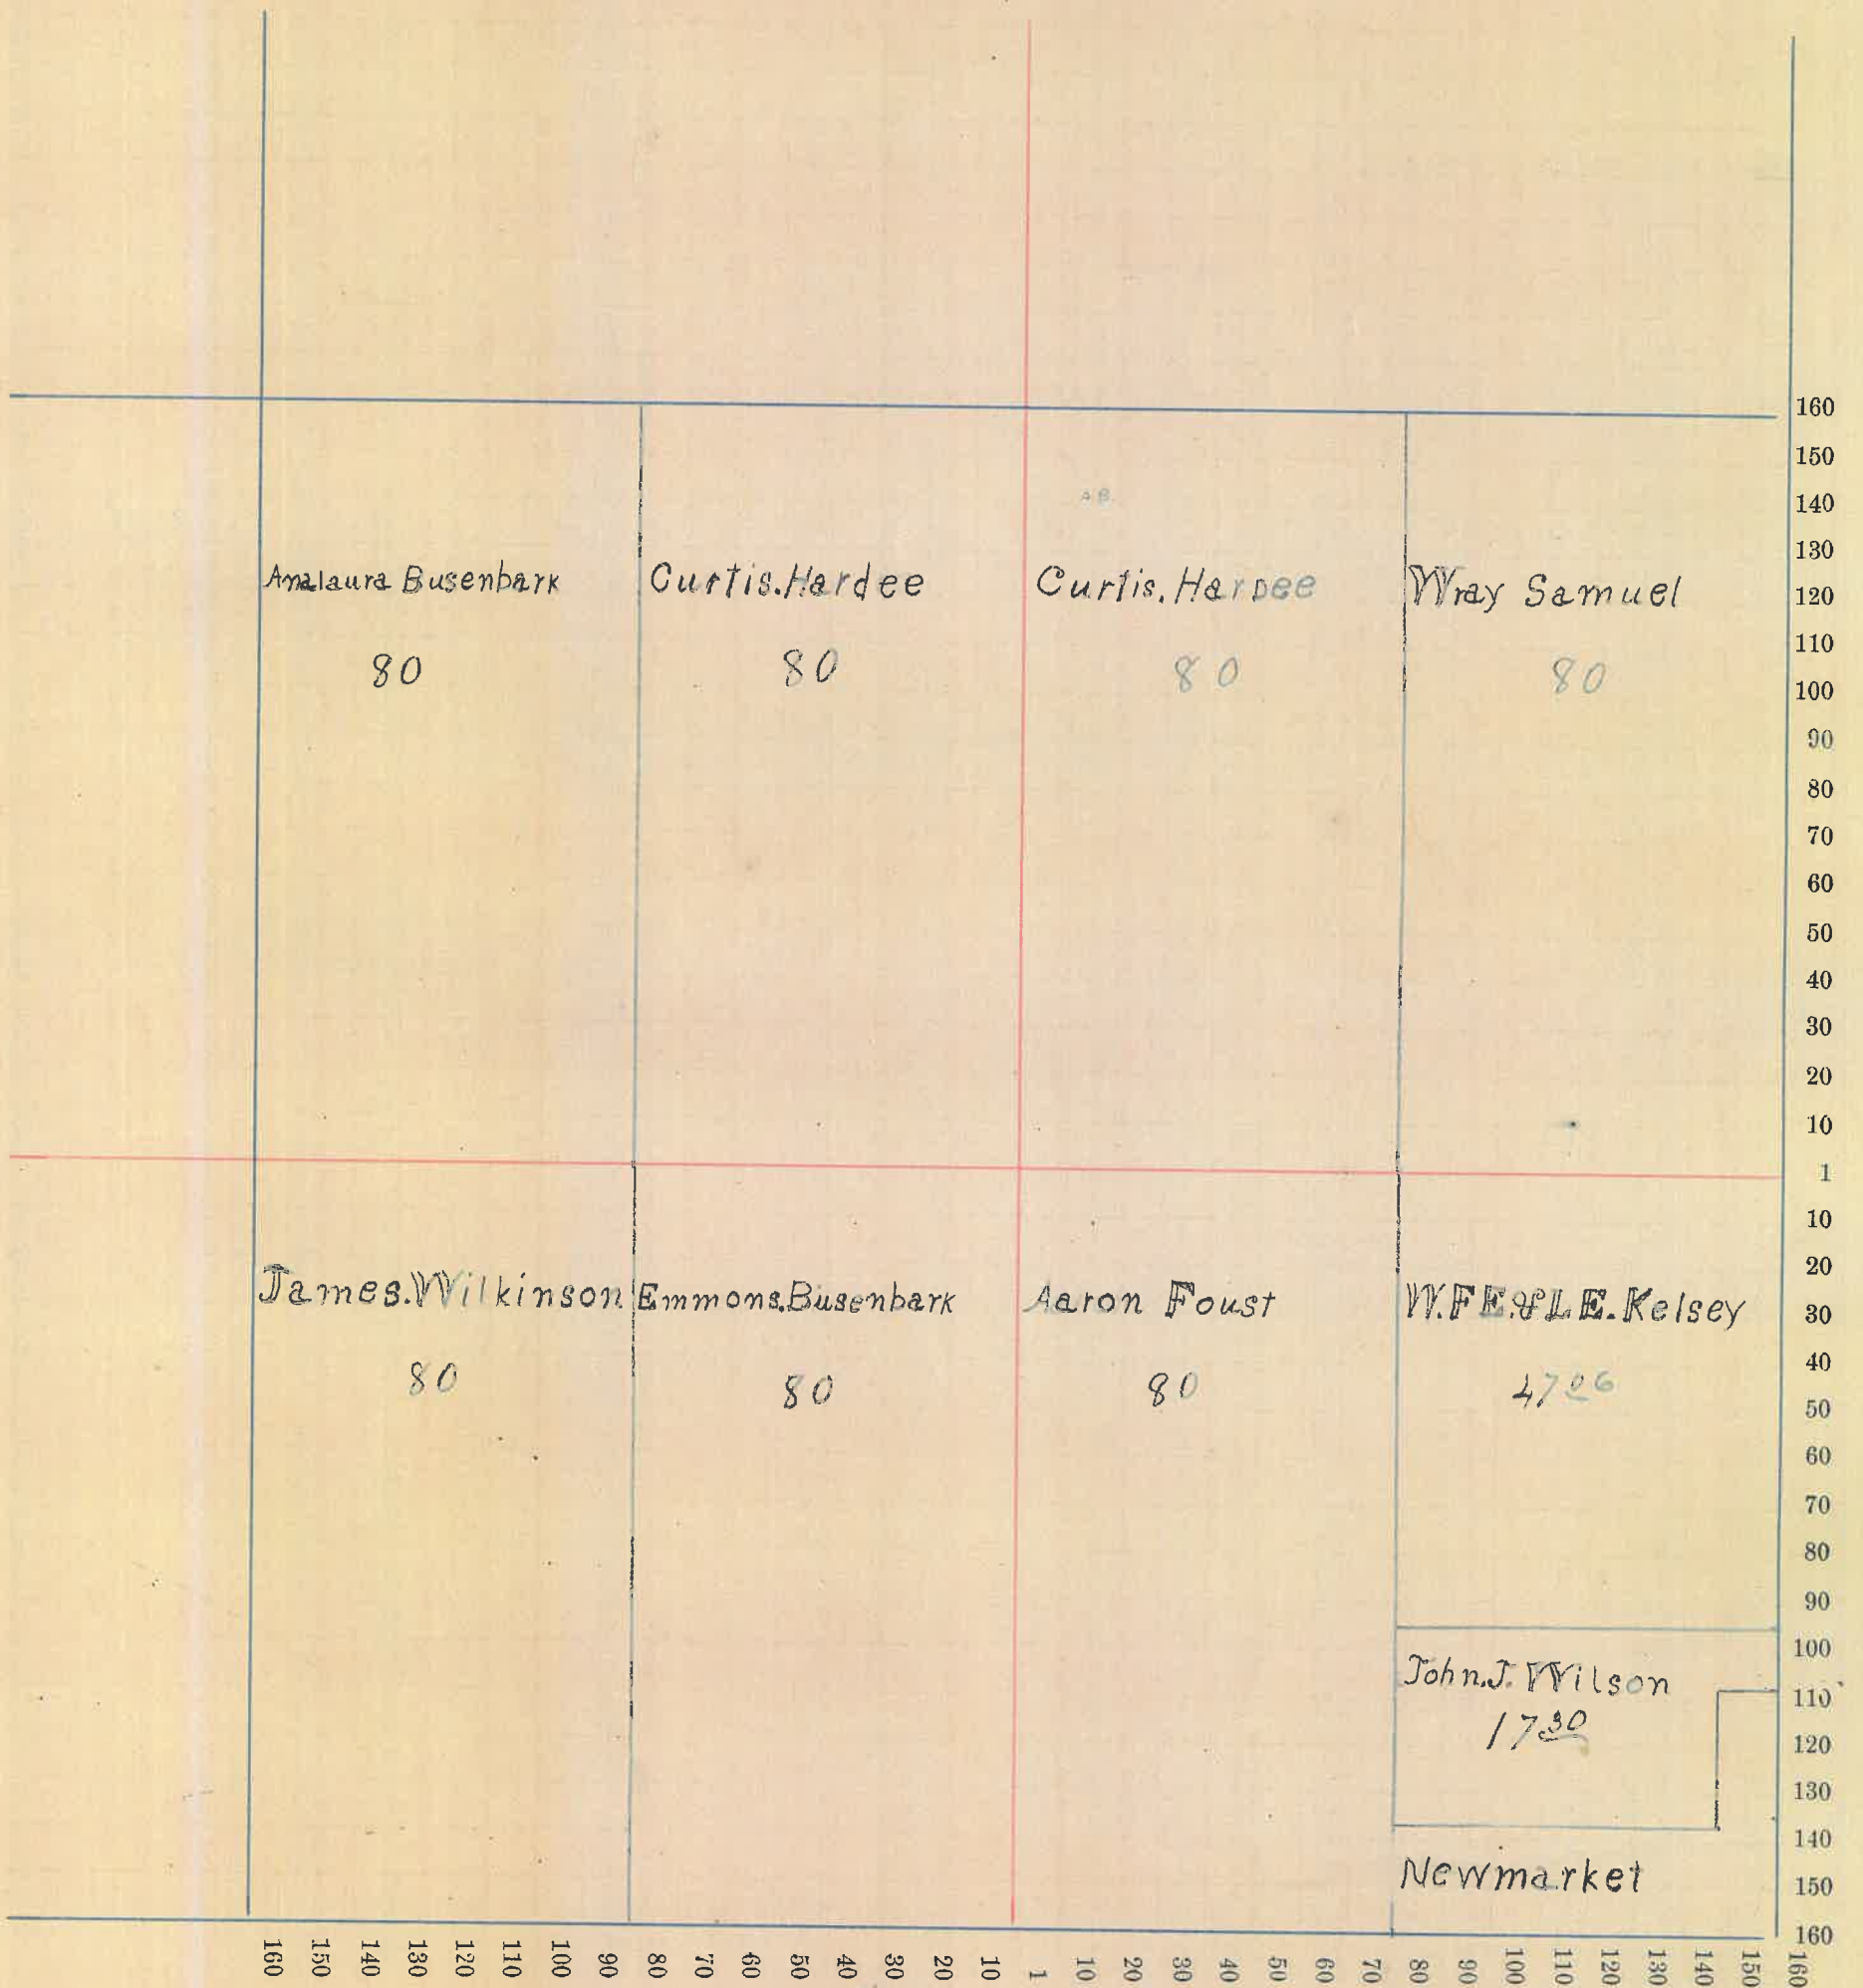 A.B.
Analaura Busenbark
Curtis.Hardee
Curtis.Hardee
Wray Samuel
80
80
80
80
James.Wilkinson
Emmons.Busenbark
Aaron Foust
W.F E.&L E.Kelsey
80
80
80
47 06
John.J.Wilson
17.30
Newmarket
160
150
140
130
120
110
100
90
80
70
60
50
40
30
20
10
1
10
20
30
40
50
60
70
80
90
100
110
120
130
140
150
160
160 150 140 130 120 110 100 90 80 70 60 50 40 30 20 10 1 10 20 30 40 50 60 70 80 90 100 110 120 130 140 150 160